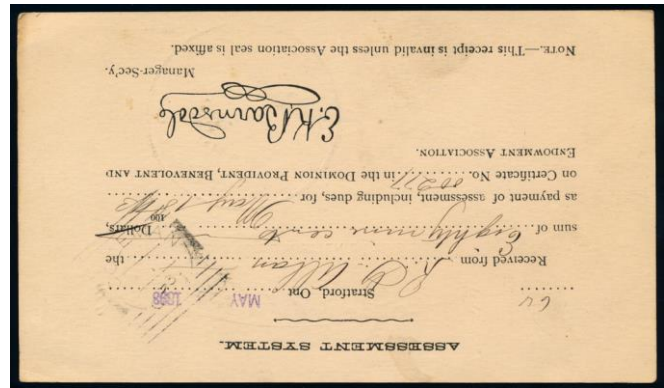 ASSESSMENT SYSTEM.
Stratford, Ont MAY 1888
Received from Allan the
sum of Eighty nine cents Dollars,
100
as payment of assessment, including dues, for May
on Certificate No. 00277 in the DOMINION PROVIDENT, BENEVOLENT AND
ENDOWMENT ASSOCIATION.
E.K. Barnsdale
Manager-Sec'y.
NOTE.—This receipt is invalid unless the Association seal is affixed.